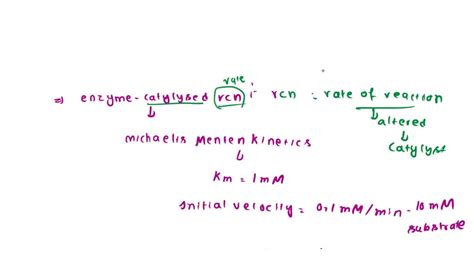 rate
⇒ enzyme-catylysed rcn : rcn : rate of reaction
altered
catalyst
michaelis menten kinetics
Km = 1mM
initial velocity = 0.1mM/min - 10mM
substrate